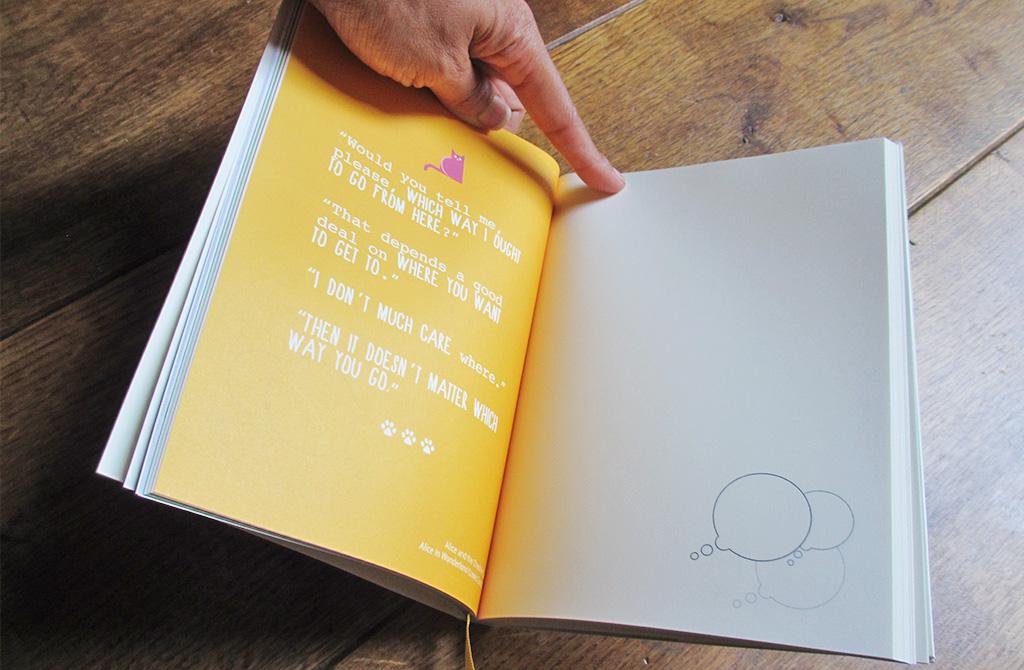 "Would you tell me,
please, WHICH WAY I OUGHT
TO GO FROM HERE?"
"That depends a good
deal on WHERE YOU WANT
TO GET TO."
"I DON'T MUCH CARE where."
"THEN IT DOESN'T MATTER WHICH
WAY YOU GO."
Alice and the
Alice in Wonderland